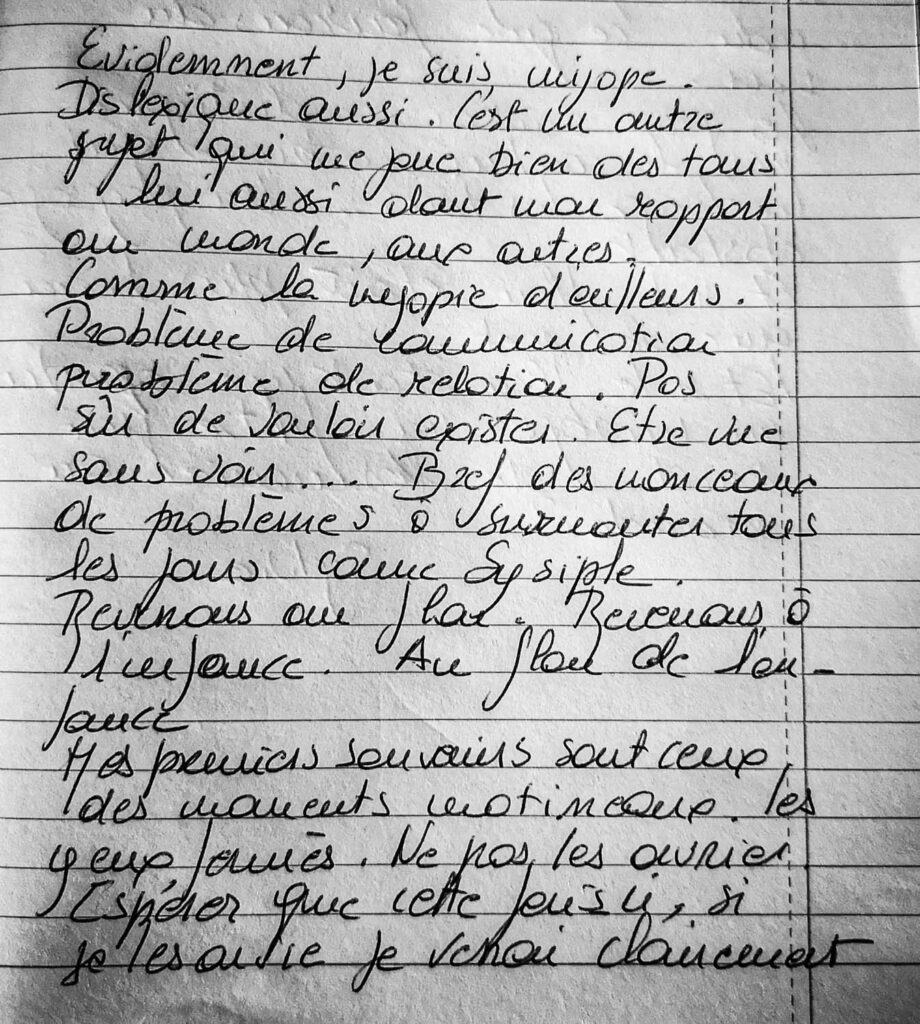 Evidemment, je suis, mijope.
Dislexique aussi. C'est un autre
sujet qui me joue bien des tours
lui aussi dant mon rapport
au monde, aux autres.
Comme la myopie d'ailleurs.
Problème de communication
problème de relation. Pas
sûr de vouloir exister. Etre vue
sans voir... Bref des monceaux
de problèmes à surmonter tous
les jours comme Sysiple.
Revenons au flou. Revenons à
l'enfance. Au flou de l'en-
fance
Mes premiers souvains sont ceux
des moments matineaux. les
yeux fermés. Ne pas les ouvrier
Espérer que cette fois ci, si
je les ouvre je verrai clairement